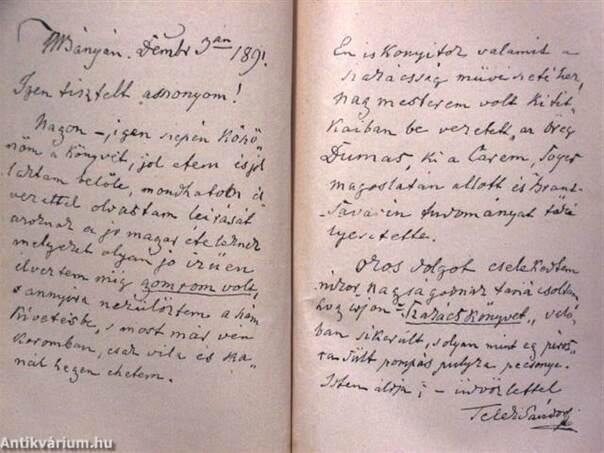 NBányán. Dëmbr 3án 1891.
Igen tisztelt asszonyom!
Nagyon –, igen szépen köszö,
nöm a könyvét, jól etem is jól
laktam belőle, mondhatom él,
vezettel olvastam leirását
azoknak a jó magyar ételeknek
melyeket olyan jó izüen
élveztem mig gomrom volt,
s annyira nélkülöztem a
követésbe, s most már vén
koromban, csak villa és ka,
nál hegyen ehetem.
Én is konyitok valamit a
szakácsság müvészetéhez,
nagymesterem volt ki tit,
kaiban be vezetett, az öreg
Dumas, ki a Carem,
magaslatán állott és Brant
Savarin tudományát
Okos dolgot cselekedtem
mikor nagyságodnak tanácsoltam
hogy írjon "Szakács könyvet„ való,
ban sikerült, s olyan mint egy piros,
ra sült pompás pulyka pecsenye.
Isten áldja; – üdvözlettel
Teleki Sándor
Antikvárium.hu